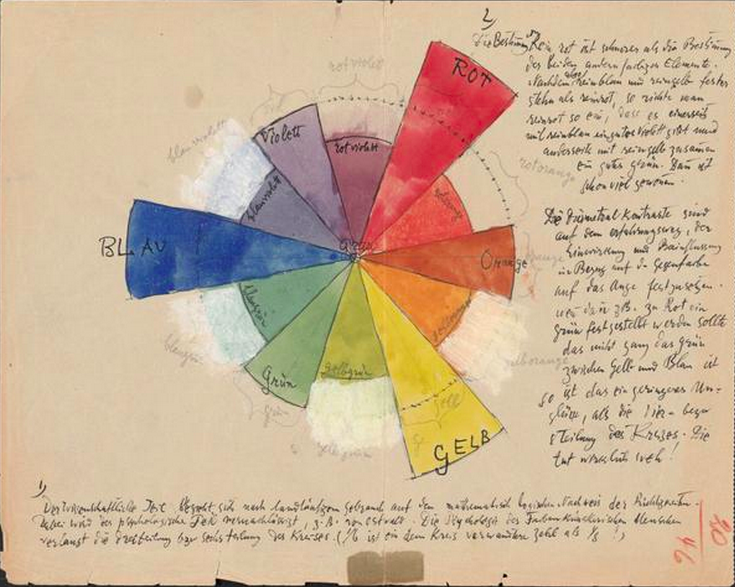 2)
Die Bestimmung von Rein rot ist schwerer als die Bestimmung
der beiden andern farbigen Elemente.
Nachdem aber reinblau und reingelb fester
stehn als reinrot, so richte man
reinrot so ein, dass es einerseits
mit reinblau ein gutes Violett gibt und
anderseits mit reingelb zusammen
ein gutes grün. Dann ist
schon viel gewonnen.
ROT
rotviolett
Violett
rotviolett
blauviolett
blauviolett
rotorange
orange
BLAU
Grau
Orange
orange
Die Diametral Kontraste sind
auf dem erfahrungsweg, der
Einwirkung und Beeinflussung
in Bezug auf die Gegenfarbe
auf das Auge festzusetzen.
wenn dann z.B. zu Rot ein
grün festgestellt werden sollte
das nicht ganz das grün
zwischen Gelb und Blau ist
so ist das ein geringeres Un-
glück, als die
teilung des Kreises. Die
tut wirklich weh!
blaugrün
blaugrün
gelborange
gelborange
Grün
grün
gelbgrün
gelbgrün
gelb
GELB
1)
Der wissenschaftliche Teil bezieht sich nach landläufigem gebrauch auf den mathematisch logischen Nachweis der Richtigkeiten.
Dabei wird der psychologische Teil vernachlässigt, z.B. von Ostwald. Die Psychologie des Farbenkünstlerischen Menschen
verlangt die dreiteilung bzw sechsteilung des Kreises. ( ist ein dem Kreis verwandtere Zahl als !)